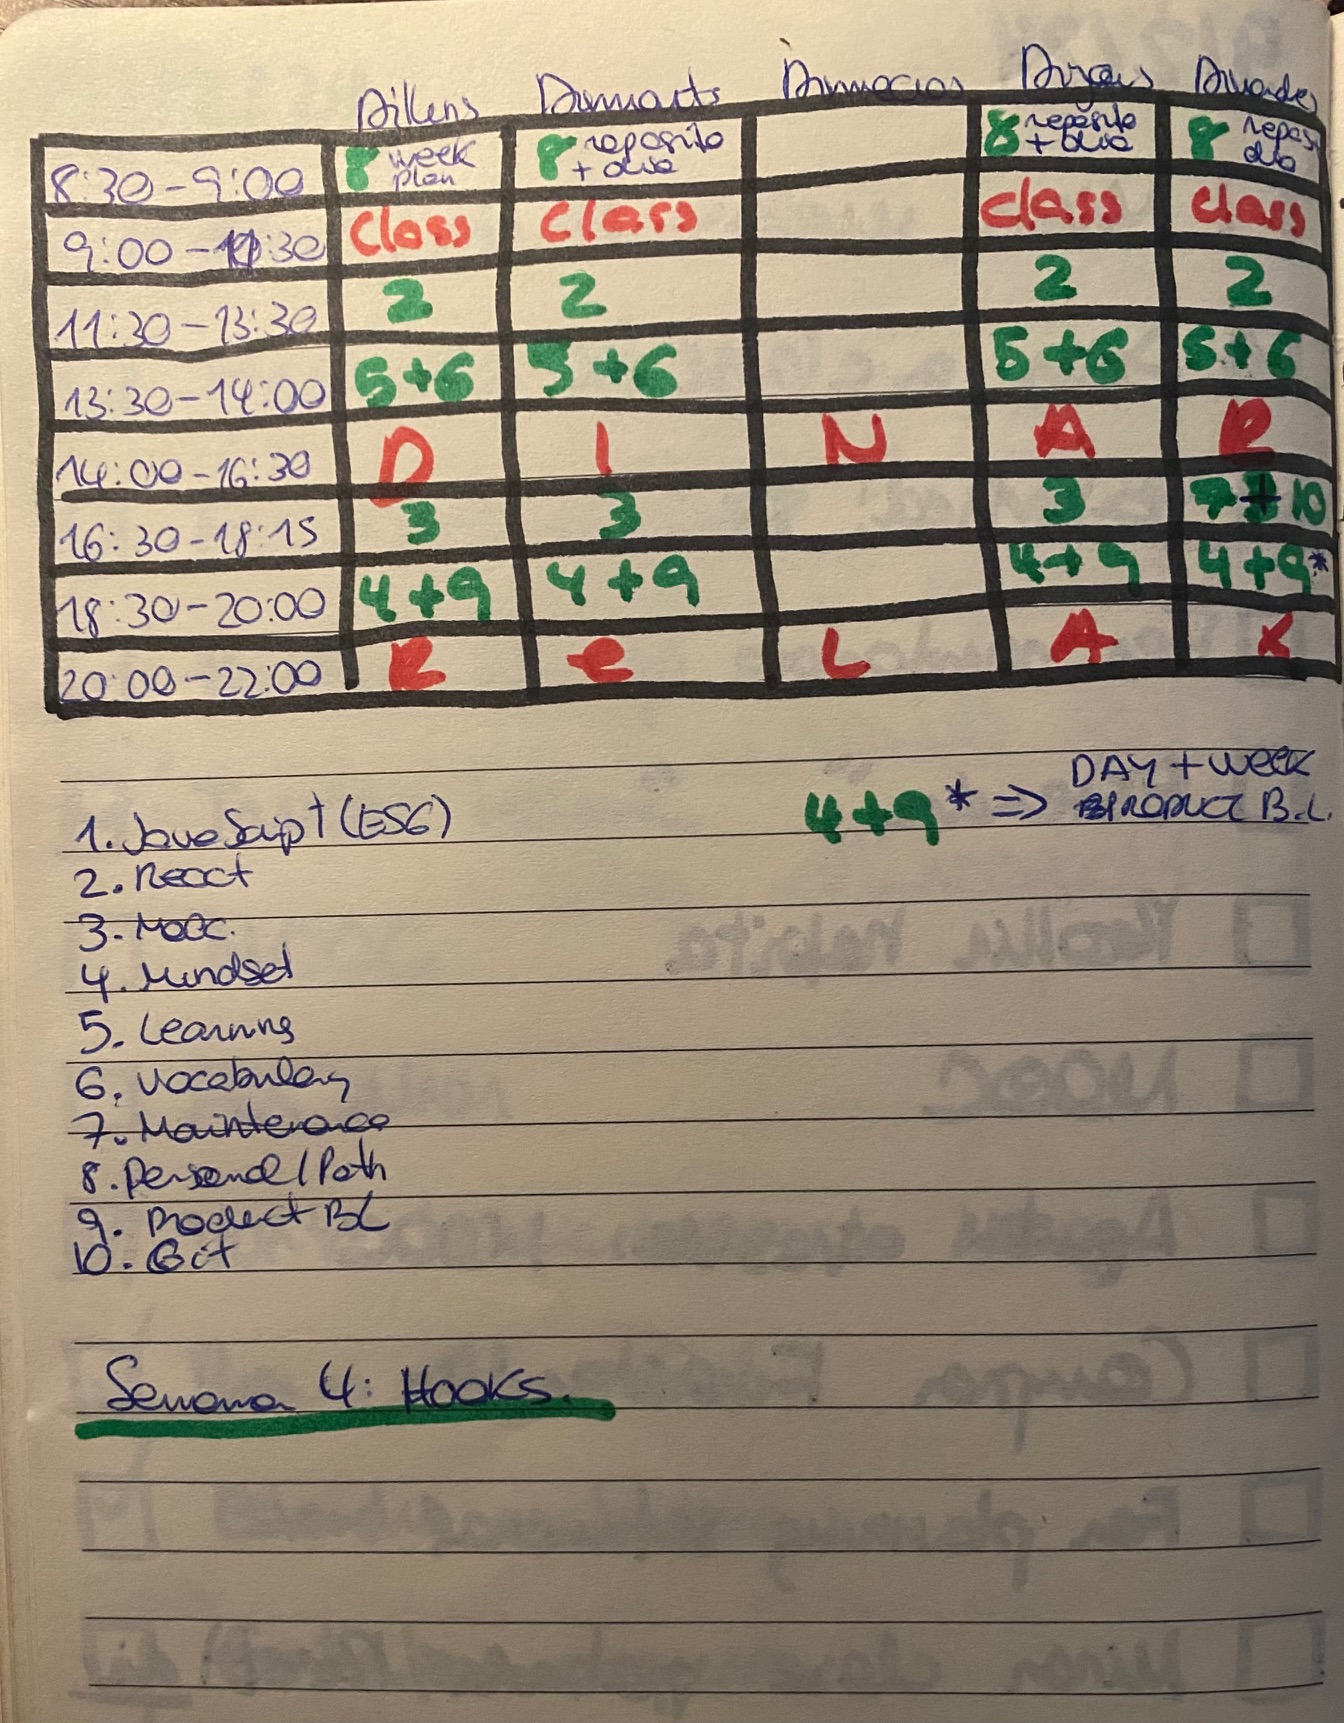 Dilluns Dimarts Dimecres Dijous Divendres
8:30-9:00 8 week plan 8 reposito + dia 8 reposito + dia 8 repos dia
9:00-11:30 Class Class Class Class
11:30-13:30 2 2 2 2
13:30-14:00 5+6 5+6 5+6 5+6
14:00-16:30 D I N A R
16:30-18:15 3 3 3 7+10
18:30-20:00 4+9 4+9 4+9 4+9*
20:00-22:00 R e L A X
4+9* => DAY + Week
PRODUCT B.L.
1. JavaScript (ES6)
2. React
3. Mooc.
4. Mindset
5. Learning
6. Vocabulary
7. Maintenance
8. Personal / Path
9. Product BL
10. Git
Semana 4: Hooks.